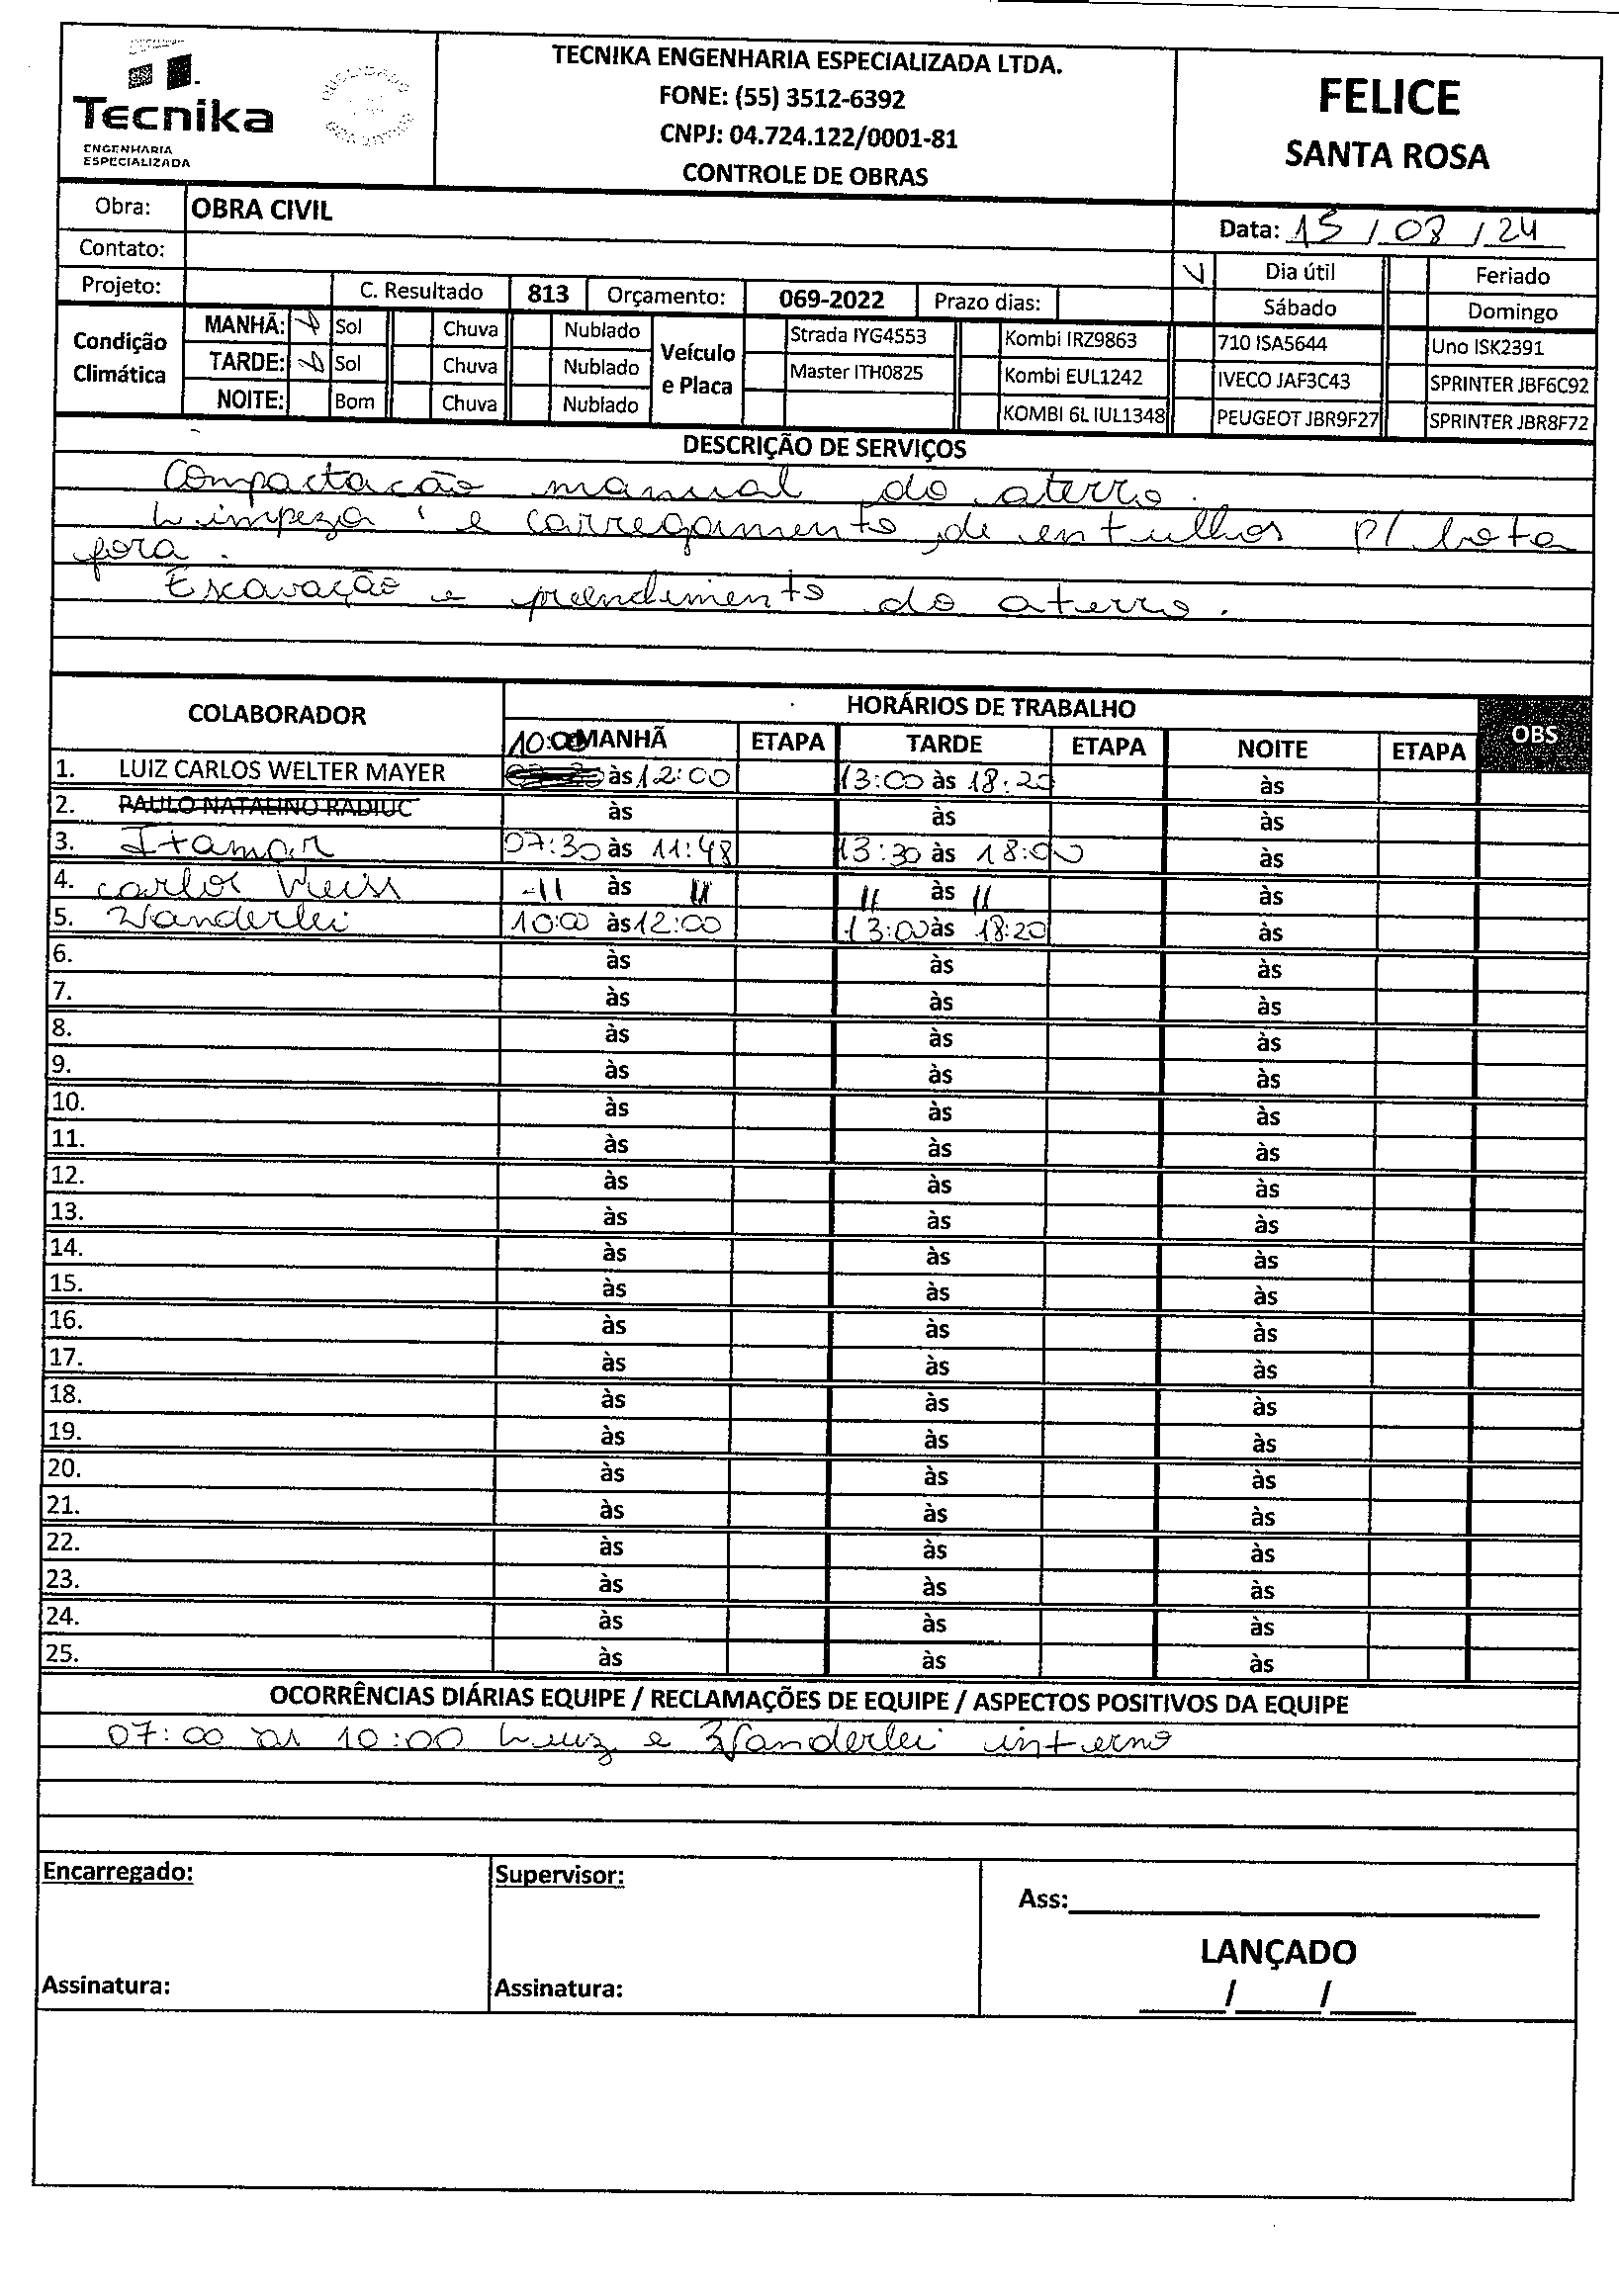 Tecnika
ENGENHARIA
ESPECIALIZADA
TECNIKA ENGENHARIA ESPECIALIZADA LTDA.
FONE: (55) 3512-6392
CNPJ: 04.724.122/0001-81
CONTROLE DE OBRAS
FELICE
SANTA ROSA
Obra: OBRA CIVIL
Data: 15 / 08 / 24
Contato:
Dia útil Feriado
Projeto: C. Resultado 813 Orçamento: 069-2022 Prazo dias: Sábado Domingo
Condição Climática
MANHÃ: Sol Chuva Nublado
TARDE: Sol Chuva Nublado
NOITE: Bom Chuva Nublado
Veículo e Placa
Strada IYG4553 Kombi IRZ9863 710 ISA5644 Uno ISK2391
Master ITH0825 Kombi EUL1242 IVECO JAF3C43 SPRINTER JBF6C92
KOMBI 6L IUL1348 PEUGEOT JBR9F27 SPRINTER JBR8F72
DESCRIÇÃO DE SERVIÇOS
Compactação manual do aterro.
Limpeza e carregamento de entulhos p/ bota
fora.
Escavação e do aterro.
COLABORADOR HORÁRIOS DE TRABALHO OBS
MANHÃ ETAPA TARDE ETAPA NOITE ETAPA
1. LUIZ CARLOS WELTER MAYER 10:00 às 12:00 13:00 às 18:20 às
2. PAULO NATALINO RADIUC às às às
3. Itamar 07:30 às 11:48 13:30 às 18:00 às
4. Carlos Weiss -11 às 11 11 às 11 às
5. Wanderlei 10:00 às 12:00 13:00 às 18:20 às
6. às às às
7. às às às
8. às às às
9. às às às
10. às às às
11. às às às
12. às às às
13. às às às
14. às às às
15. às às às
16. às às às
17. às às às
18. às às às
19. às às às
20. às às às
21. às às às
22. às às às
23. às às às
24. às às às
25. às às às
OCORRÊNCIAS DIÁRIAS EQUIPE / RECLAMAÇÕES DE EQUIPE / ASPECTOS POSITIVOS DA EQUIPE
07:00 as 10:00 Luiz e Wanderlei interno
Encarregado: Supervisor:
Ass:
LANÇADO
Assinatura: Assinatura: / /